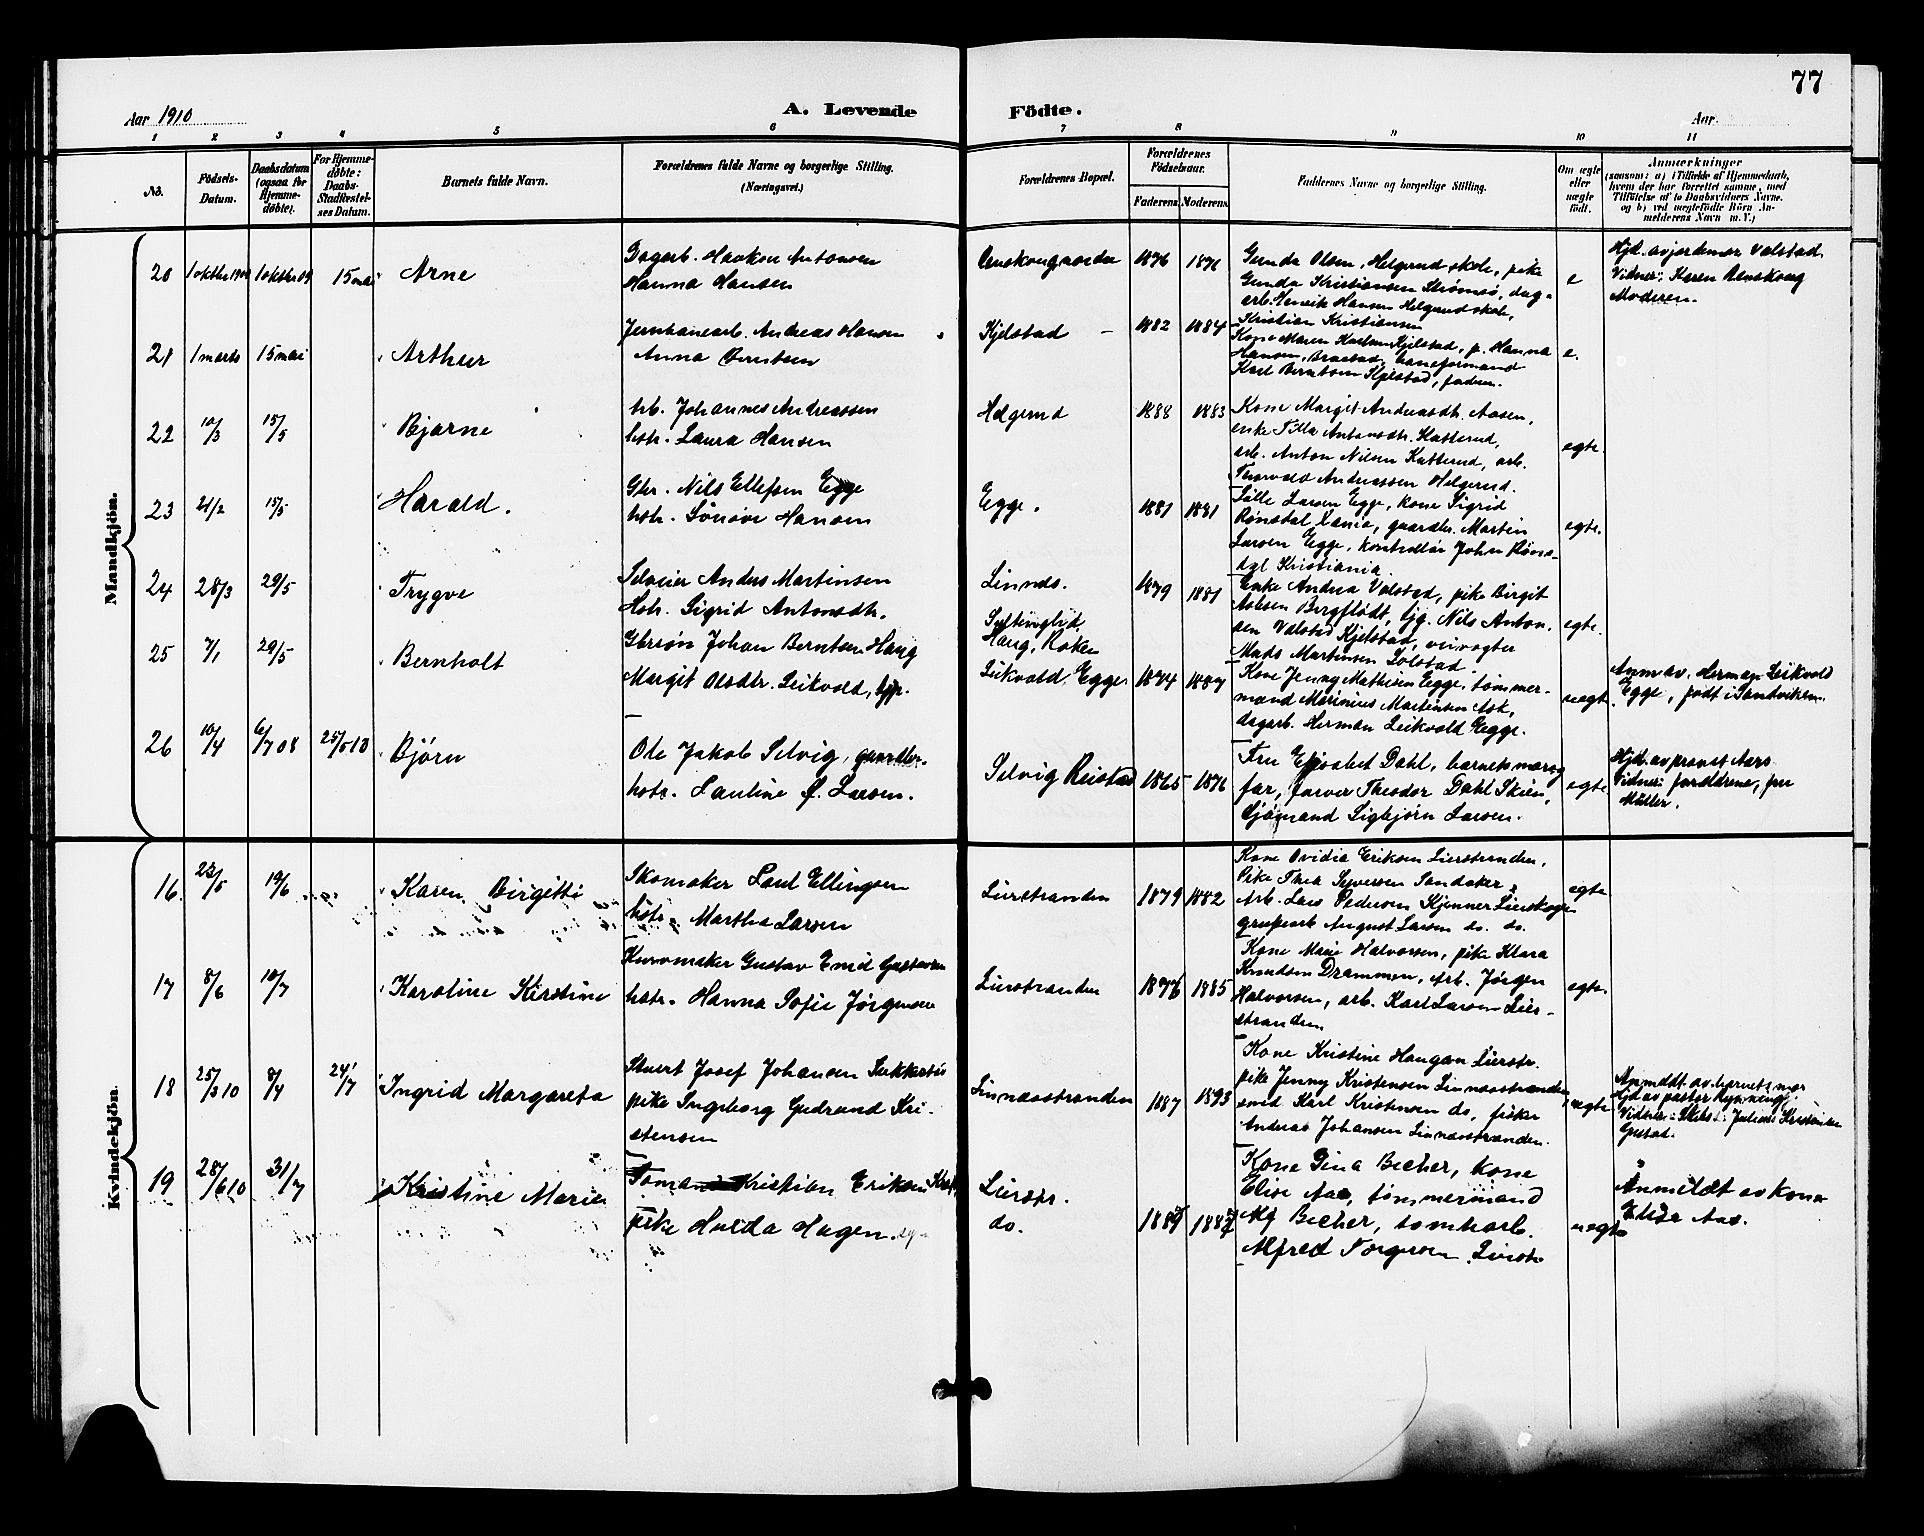 77
Aar 1910
A. Levende
Födte.
Aar
1 2 3 4 5 6 7 8 9 10 11
No.
Födsels-
Datum.
Daabsdatum
(ogsaa for
Hjemme-
döbte).
For Hjemme-
döbte:
Daabs-
Stadfæstel-
ses Datum.
Barnets fulde Navn.
Forældrenes fulde Navne og borgerlige Stilling.
(Næringsvei.)
Forældrenes Bopæl.
Forældrenes
Födselsaar.
Faderens. Moderens.
Faddernes Navne og borgerlige Stilling.
Om ægte
eller
uægte
födt.
Anmærkninger
(saasom: a) i Tilfælde af Hjemmedaab,
hvem der har forrettet samme, med
Tilföielse af to Daabsvidners Navne,
og b) ved uægtefödte Börn An-
melderens Navn m. V.)
Mandkjön.
20 1 oktbr 1909 1 oktbr 09 15 mai Arne
Dagarb. Haakon Antonsen
Hanna Hansen
1876 1871
Gunda Olsen, Helgerud skole, pike
Gunda Kristiansen Strömsö, dag-
arb. Henrik Hansen Helgerud skole,
Kristian Kristiansen
e
Hjd. av jordmor Valstad
Vidner: Karen Renskoug
Moderen.
21 1 marts 15 mai Arthur
Jernbanearb. Andreas Hansen
Anna Berntsen
Kjelstad
1882 1884
Kone Maren Karlsen Kjelstad, p. Hanna
Hansen, baneformand
Karl Berntsen Kjelstad, faderen.
e.
22 10/3 15/5 Bjarne
Arb. Johannes Andreassen
hstr. Laura Hansen
Helgerud
1888 1883
Kone Margit Andreasdtr. Aasen,
enke Tilla Antonsdtr. Katterud,
arb. Anton Nilsen Katterud, arb.
Thorvald Andreassen Helgerud.
egte.
23 21/2 15/5 Harald.
Gbr. Nils Ellefsen Egge
hstr. Sönöve Hansen
Egge.
1881 1881
Lille Larsen Egge, kone Sigrid
Rönsdal Xania, gaardbr. Martin
Larsen Egge, kontrollör John Röns-
dal Kristiania.
egte.
24 28/3 29/5 Trygve
Selveier Anders Martinsen
Hstr. Sigrid Antonsdtr.
Linnes.
1879 1881
Enke Andrea Valstad, pike Birgit
Bergflödt, Nils Anton-
sen Valstad Kjelstad, veivogter
Mads Martinsen Solstad.
egte.
25 7/1 29/5 Bernholt
Gbrsön Johan Berntsen Haug
Margit Olsdtr. Leikvold,
Haug, Röken
Leikvold Egge
1874 1887
Kone Jenny Mathisen Egge, tömmer-
mand Marinius Martinsen Ask,
dagarb. Herman Leikvold Egge.
uegte
Anm av. Herman Leikvold
Egge, födt i Sandviken.
26 10/4 6/7 08 25/5 10 Björn
Ole Jakob Selvig, gaardbr.
hstr. Pauline f. Larsen.
Selvig Reistad
1865 1876
Fru Elisabet Dahl, barnets mor og
far, farver Theodor Dahl Skien,
Sjömand Sigbjörn Larsen.
egte
Hjd. av provst Aars
Vidner: forældrene, fru
Müller.
Kvindekjön.
16. 23/5 19/6 Karen Birgitte
Skomaker Paul Ellingsen
hstr. Martha Larsen
Lierstranden
1879 1882
Kone Ovidia Eriksen Lierstranden,
Pike Thea Syversen Sandaker,
Arb. Lars Pedersen Kjenner Lierskogen
grubearb. August Larsen do. do.
egte
17 8/6 10/7 Karoline Kirstine
Kurvmaker Gustav Emil Gustavsen
hstr. Hanna Sofie Jörgensen
Lierstranden
1876 1885
Kone Marie Halvorsen, pike Klara
Knudsen Drammen, arb. Jörgen
Halvorsen, arb. Karl Larsen Lier-
stranden
egte.
18 25/3 10 8/4 24/7 Ingrid Margareta
Stuert Josef Johansen
pike Ingeborg Gudrund Kri-
stensen
Linnesstranden
1887 1893
Kone Kristine Haugan Lierstr.
pike Jenny Kristensen Linnesstranden
smed Karl Kristensen do, fisker
Andreas Johansen Linnesstranden.
uegte
Anmeldt av barnets mor
Hjd av pastor Rynning,
Vidner: Julius Kristensen
Gustad.
19 28/6 10 31/7 Kristine Marie
Kristian Eriksen
pike Hulda Hagen.
Lierstr.
do.
1889 1887
Kone Gina Becher, kone
Elise Aas, tömmermand
Alf Becher, tomtearb.
Alfred Torgersen Lierstr
uegte
Anmeldt av kone
Elise Aas.